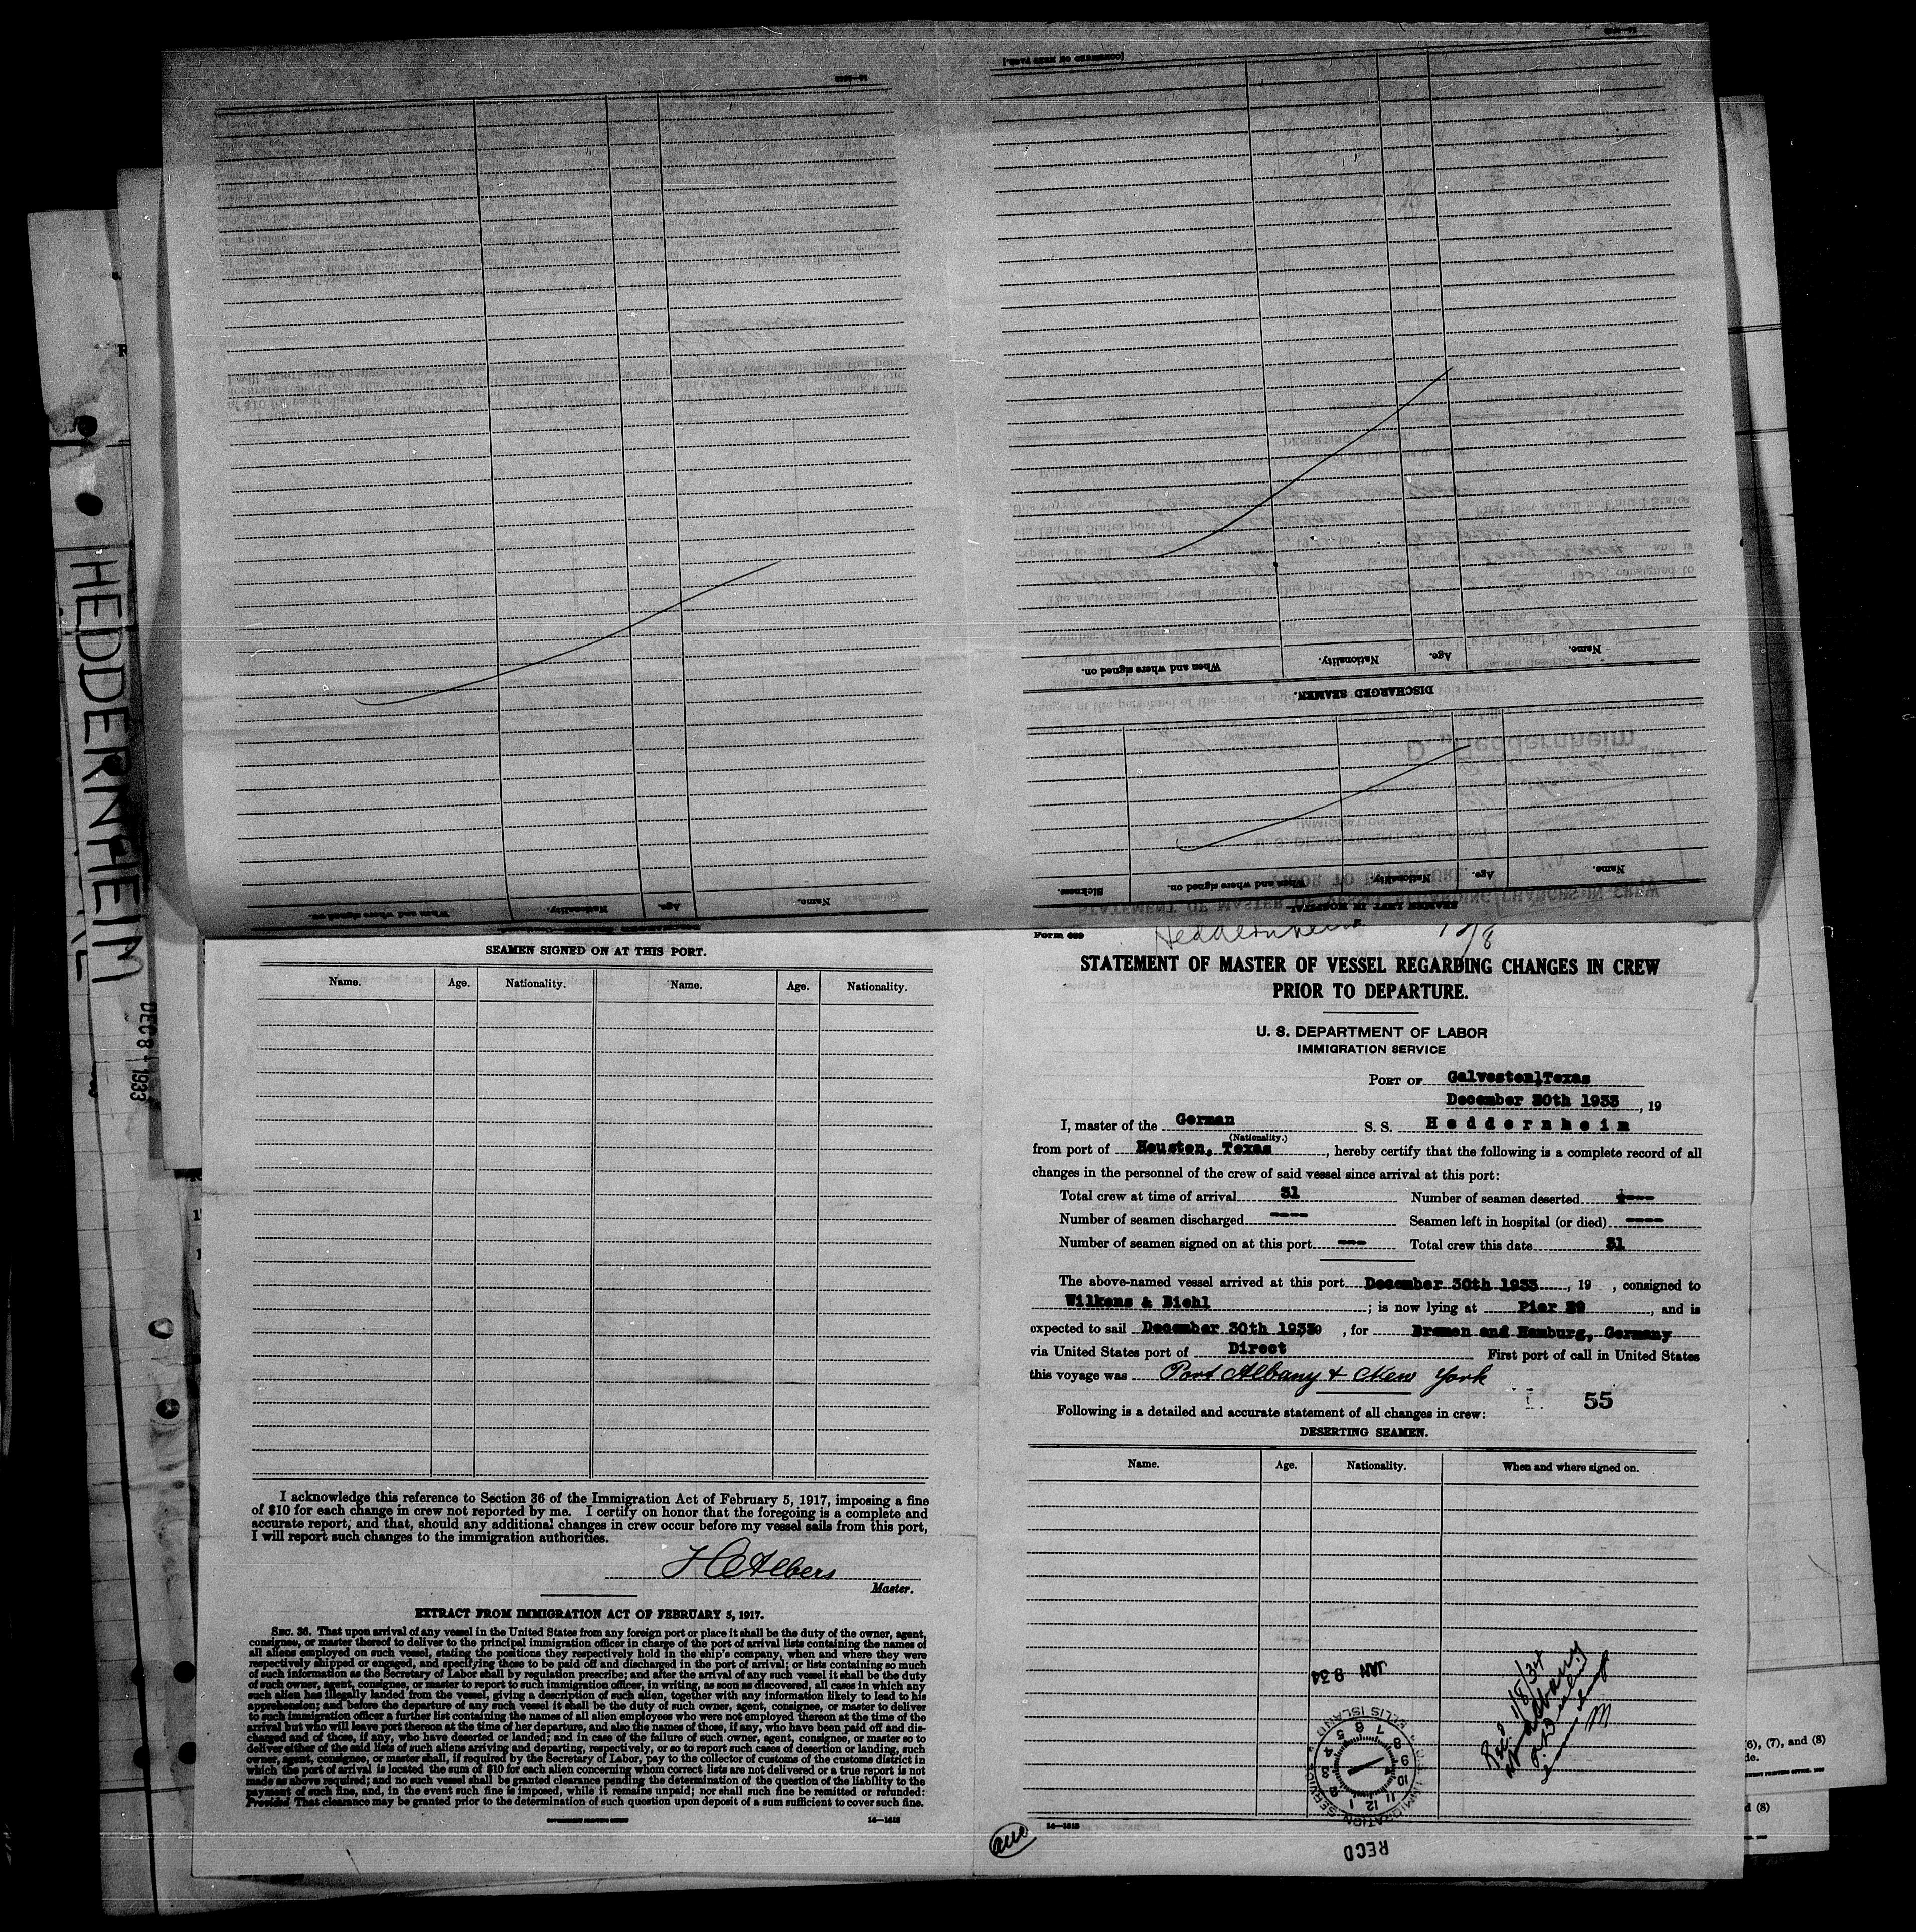 HEDDERNHEIM
DEC 8 1933
[CONTINUED ON NEXT PAGE.]
When and where signed on.
Nationality.
Age.
Name.
DISCHARGED SEAMEN.
Sickness.
When and where signed on.
Nationality.
Age.
Name.
SEAMEN LEFT IN HOSPITAL.
When and where signed on.
Nationality.
Age.
Name.
SEAMEN SIGNED ON AT THIS PORT.
Name. Age. Nationality. Name. Age. Nationality.
I acknowledge this reference to Section 36 of the Immigration Act of February 5, 1917, imposing a fine
of $10 for each change in crew not reported by me. I certify on honor that the foregoing is a complete and
accurate report; and that, should any additional changes in crew occur before my vessel sails from this port,
I will report such changes to the immigration authorities.
H Albers
Master.
EXTRACT FROM IMMIGRATION ACT OF FEBRUARY 5, 1917.
SEC. 36. That upon arrival of any vessel in the United States from any foreign port or place it shall be the duty of the owner, agent,
consignee, or master thereof to deliver to the principal immigration officer in charge of the port of arrival lists containing the names of
all aliens employed on such vessel, stating the positions they respectively hold in the ship's company, when and where they were
respectively shipped or engaged, and specifying those to be paid off and discharged in the port of arrival; or lists containing so much
of such information as the Secretary of Labor shall by regulation prescribe; and after the arrival of any such vessel it shall be the duty
of such owner, agent, consignee, or master to report to such immigration officer, in writing, as soon as discovered, all cases in which any
such alien has illegally landed from the vessel, giving a description of such alien, together with any information likely to lead to his
apprehension; and before the departure of any such vessel it shall be the duty of such owner, agent, consignee, or master to deliver
to such immigration officer a further list containing the names of all alien employees who were not employed thereon at the time of the
arrival but who will leave port thereon at the time of her departure, and also the names of those, if any, who have been paid off and dis-
charged and of those, if any, who have deserted or landed; and in case of the failure of such owner, agent, consignee, or master so to
deliver either of the said lists of such aliens arriving and departing, respectively, or so to report such cases of desertion or landing, such
owner, agent, consignee, or master shall, if required by the Secretary of Labor, pay to the collector of customs of the customs district in
which the port of arrival is located the sum of $10 for each alien concerning whom correct lists are not delivered or a true report is not
made as above required; and no such vessel shall be granted clearance pending the determination of the question of the liability to the
payment of such fine, and, in the event such fine is imposed, while it remains unpaid; nor shall such fine be remitted or refunded:
Provided That clearance may be granted prior to the determination of such question upon deposit of a sum sufficient to cover such fine.
GOVERNMENT PRINTING OFFICE 14—1613
Form 689 Heddernheim 12/8
STATEMENT OF MASTER OF VESSEL REGARDING CHANGES IN CREW
PRIOR TO DEPARTURE.
U. S. DEPARTMENT OF LABOR
IMMIGRATION SERVICE
PORT OF Galveston, Texas
December 30th 1933, 19
I, master of the German S. S. Heddernheim
(Nationality.)
from port of Houston, Texas, hereby certify that the following is a complete record of all
changes in the personnel of the crew of said vessel since arrival at this port:
Total crew at time of arrival 31 Number of seamen deserted ----
Number of seamen discharged ---- Seamen left in hospital (or died) ----
Number of seamen signed on at this port --- Total crew this date 31
The above-named vessel arrived at this port December 30th 1933, 19 , consigned to
Wilkens & Biehl; is now lying at Pier 29, and is
expected to sail December 30th 1933, for Bremen and Hamburg, Germany
via United States port of Direct First port of call in United States
this voyage was Port Albany & New York
55
Following is a detailed and accurate statement of all changes in crew:
DESERTING SEAMEN.
Name. Age. Nationality. When and where signed on.
JAN 9 34
Rec. 1/8/34
IMMIGRATION SERVICE
ELLIS ISLAND
RECD
14—1613
(6), (7), and (8)